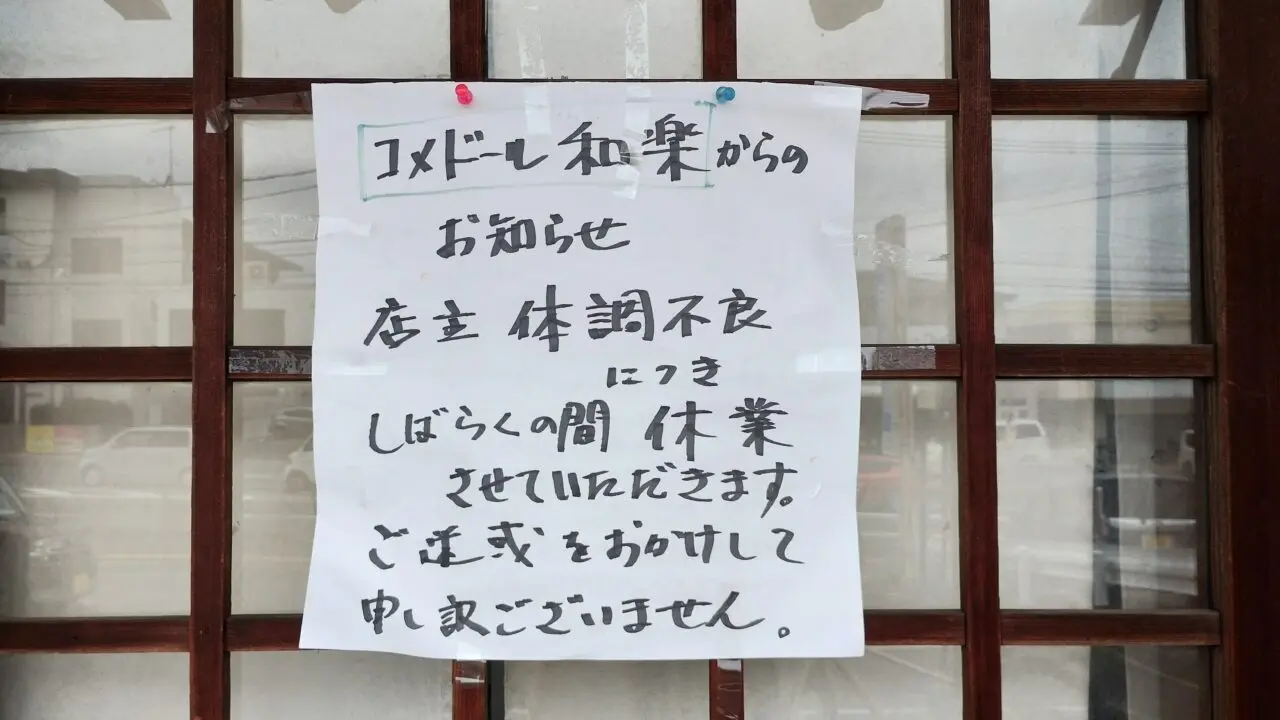 コメドール和楽からの
お知らせ
店主 体調不良
につき
しばらくの間 休業
させていただきます。
ご迷惑をおかけして
申し訳ございません。